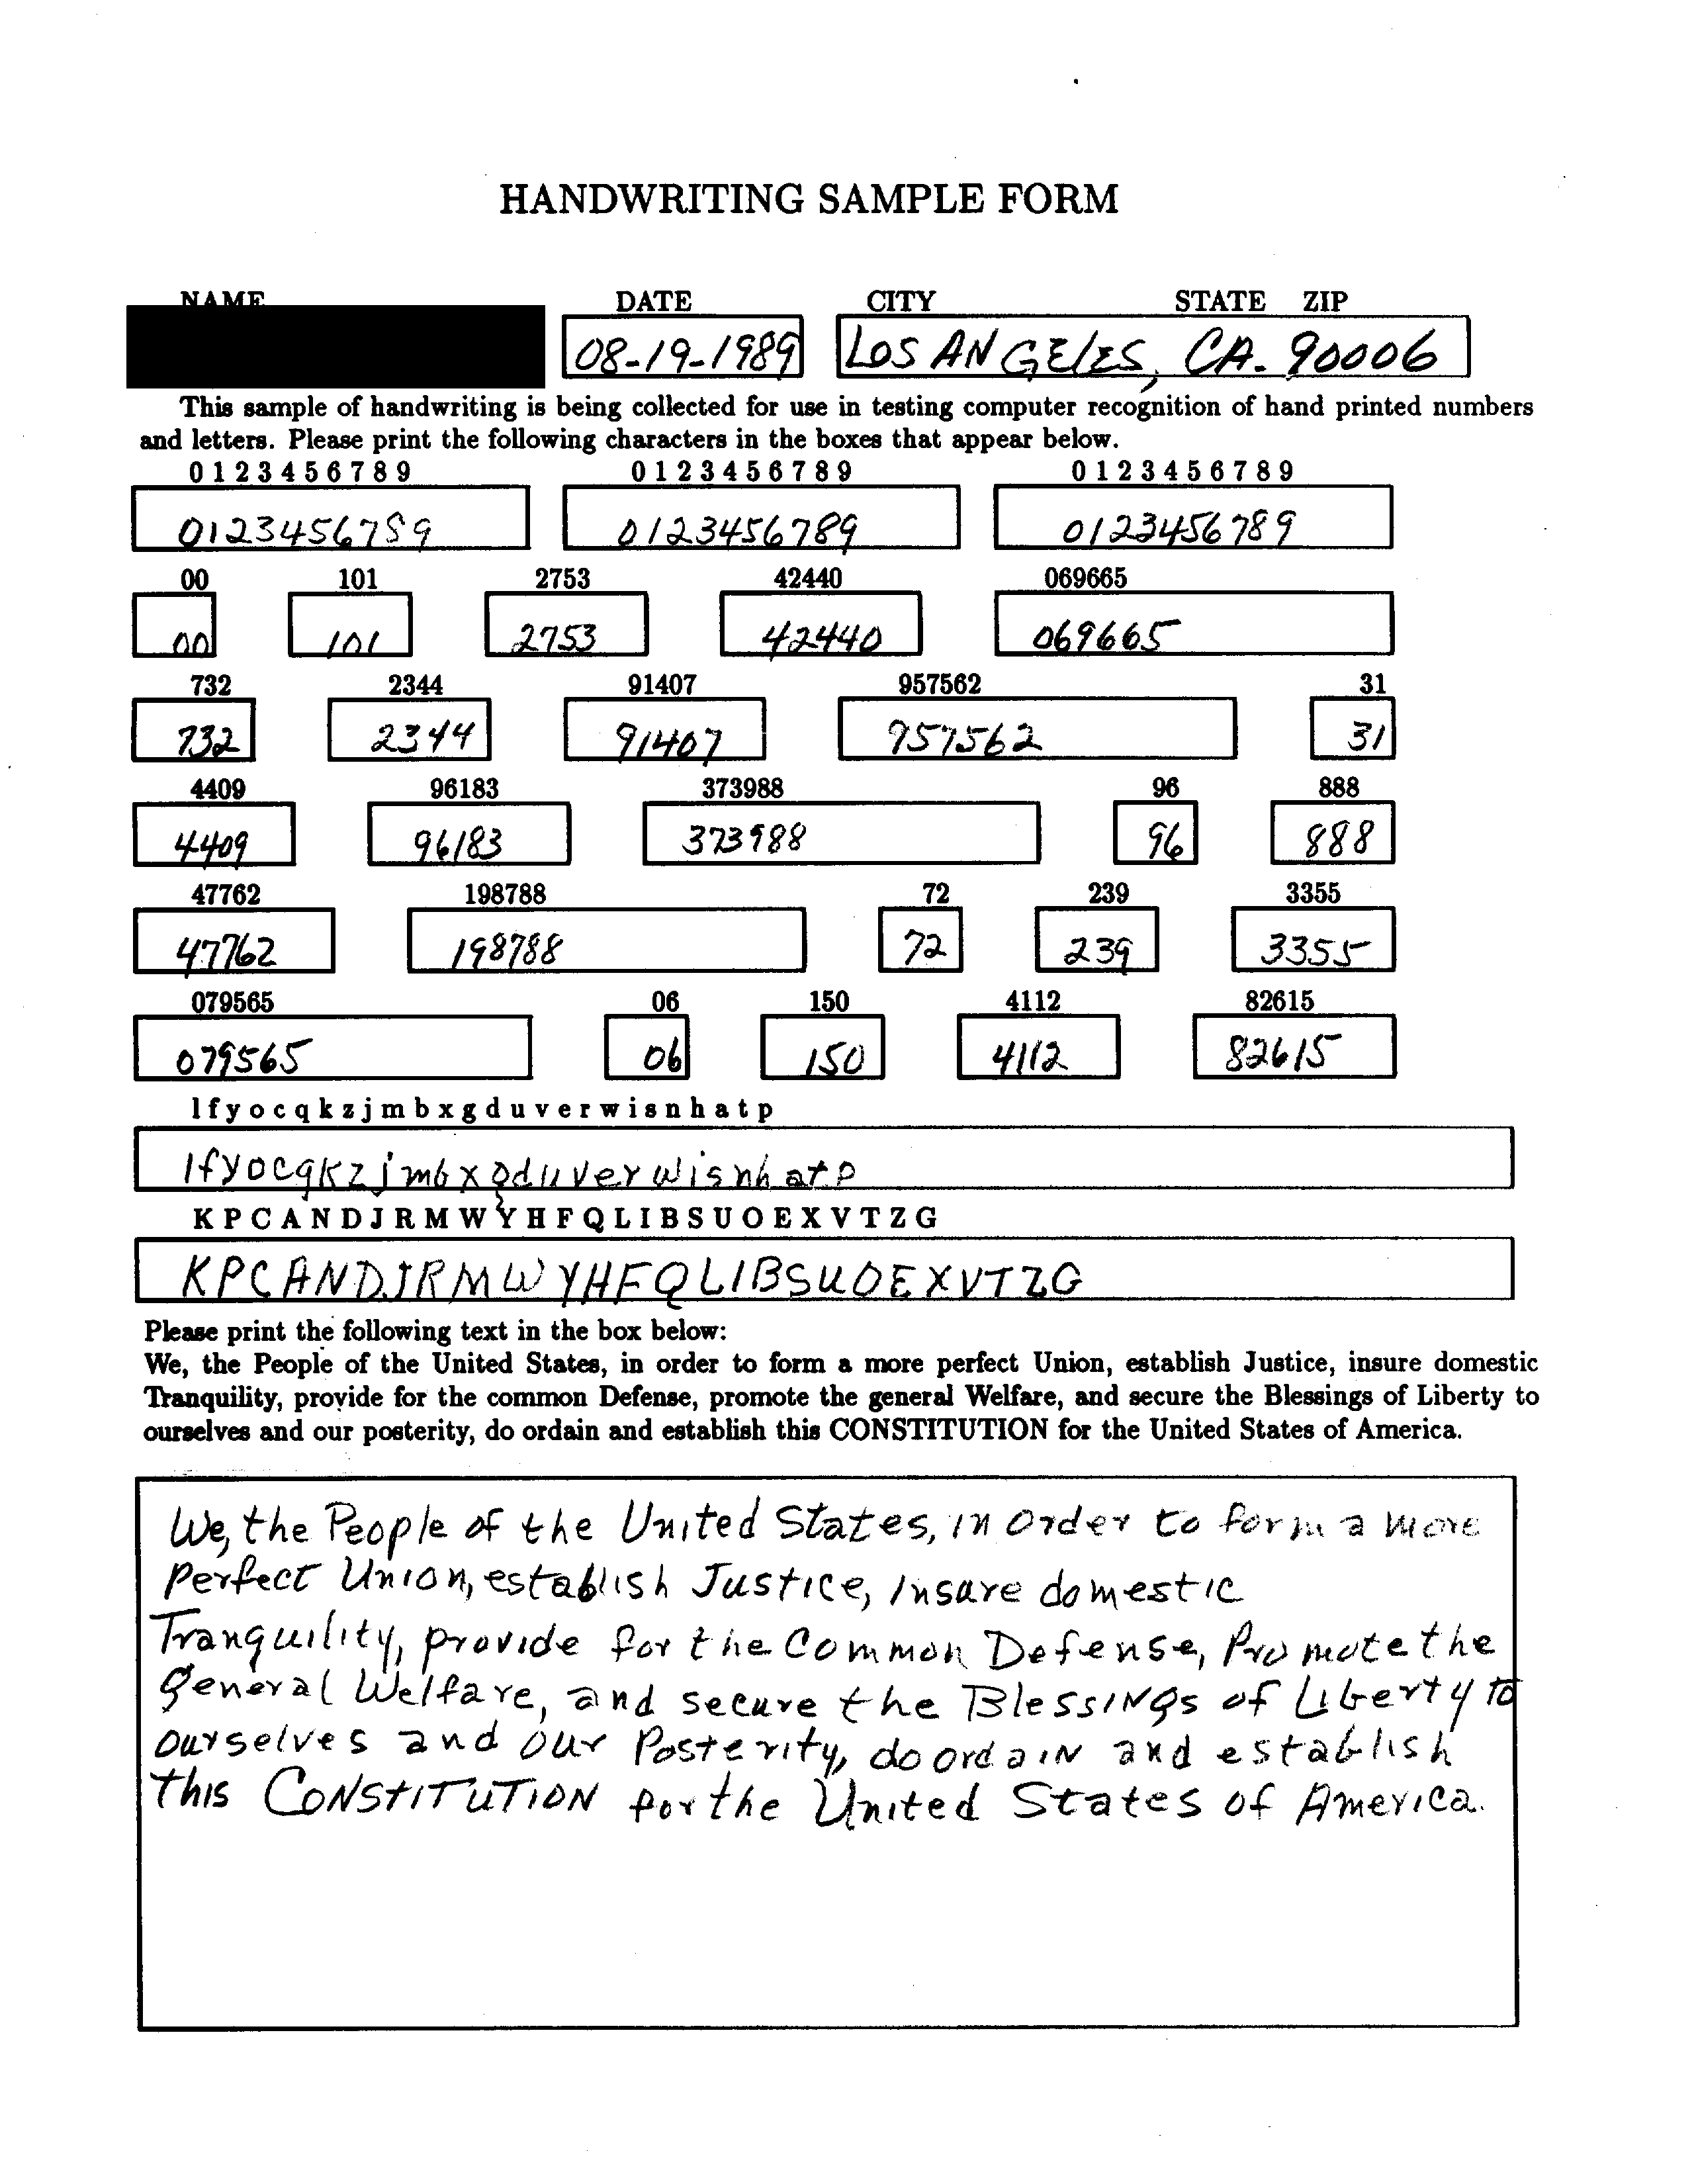 HANDWRITING SAMPLE FORM
NAME DATE CITY STATE ZIP
08-19-1989 LOS ANGELES, CA. 90006
This sample of handwriting is being collected for use in testing computer recognition of hand printed numbers
and letters. Please print the following characters in the boxes that appear below.
0 1 2 3 4 5 6 7 8 9 0 1 2 3 4 5 6 7 8 9 0 1 2 3 4 5 6 7 8 9
0123456789 0123456789 0123456789
00 101 2753 42440 069665
00 101 2753 42440 069665
732 2344 91407 957562 31
732 2344 91407 957562 31
4409 96183 373988 96 888
4409 96183 373988 96 888
47762 198788 72 239 3355
47762 198788 72 239 3355
079565 06 150 4112 82615
079565 06 150 4112 82615
l f y o c q k z j m b x g d u v e r w i s n h a t p
lfyocqkzjmbxgduverwisnhatp
K P C A N D J R M W Y H F Q L I B S U O E X V T Z G
KPCANDJRMWYHFQLIBSUOEXVTZG
Please print the following text in the box below:
We, the People of the United States, in order to form a more perfect Union, establish Justice, insure domestic
Tranquility, provide for the common Defense, promote the general Welfare, and secure the Blessings of Liberty to
ourselves and our posterity, do ordain and establish this CONSTITUTION for the United States of America.
We, the People of the United States, in order to form a more
perfect Union, establish Justice, insure domestic
Tranquility, provide for the Common Defense, Promote the
general Welfare, and secure the Blessings of Liberty to
ourselves and our Posterity, do ordain and establish
this CONSTITUTION for the United States of America.